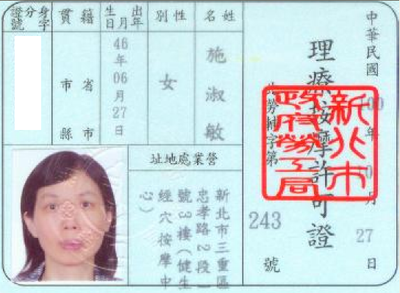 中華民國
年
月
27
日
理療按摩許可證
勞
字第
243
號
新北市
政府勞工局
姓名
施淑敏
性別
女
出生年月日
46年06月27日
籍貫
省市
縣市
身分證字號
營業處地址
新北市三重區
忠孝路2段一
號3樓(健生
經穴按摩中